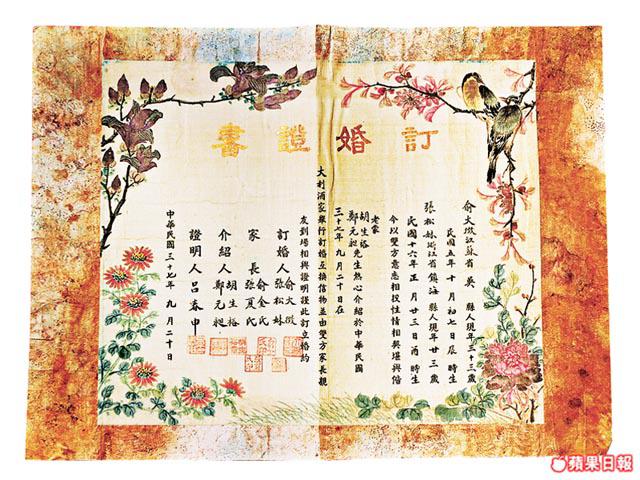 訂婚證書
俞大徵江蘇省 吳 縣人現年三十三歲
民國五年 十月 初七日 辰 時生
張松妹浙江省 鎮海 縣人現年廿三歲
民國十六年 正月 廿三日 酉 時生
今以雙方意志相投性情相契堪與偕
老蒙
胡生裕
鄭元昶先生熱心介紹於中華民國
三十七年 九月二十日在
大利酒家舉行訂婚互換信物並由雙方家長親
友到場相與證明謹此訂立婚約
訂婚人 俞大徵
張松妹
家長 俞金氏
張夏氏
介紹人 胡生裕
鄭元昶
證明人 呂春申
中華民國 三十七年 九月 二十日
蘋果日報